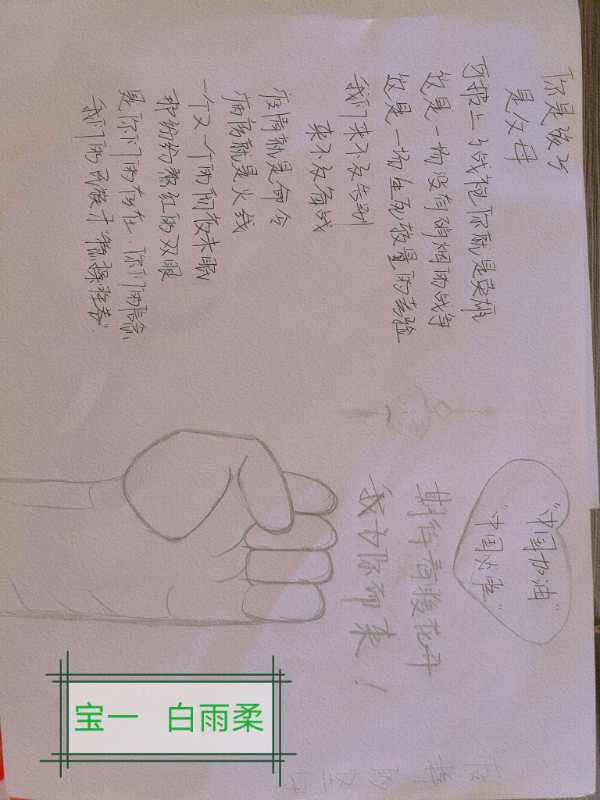 你是孩子
是父母
可披上了战袍你就是英雄
这是一场没有硝烟的战争
这是一场生死较量的考验
我们来不及告别
来不及备战
疫情就是命令
病房就是火线
一个又一个的彻夜未眠
那纷纷熬红的双眼
是你们的存在,你们的信念
我们的才"稳操胜券"
"中国加油"
"中国必胜"
期待春暖花开
我为你而来!
宝一 白雨柔